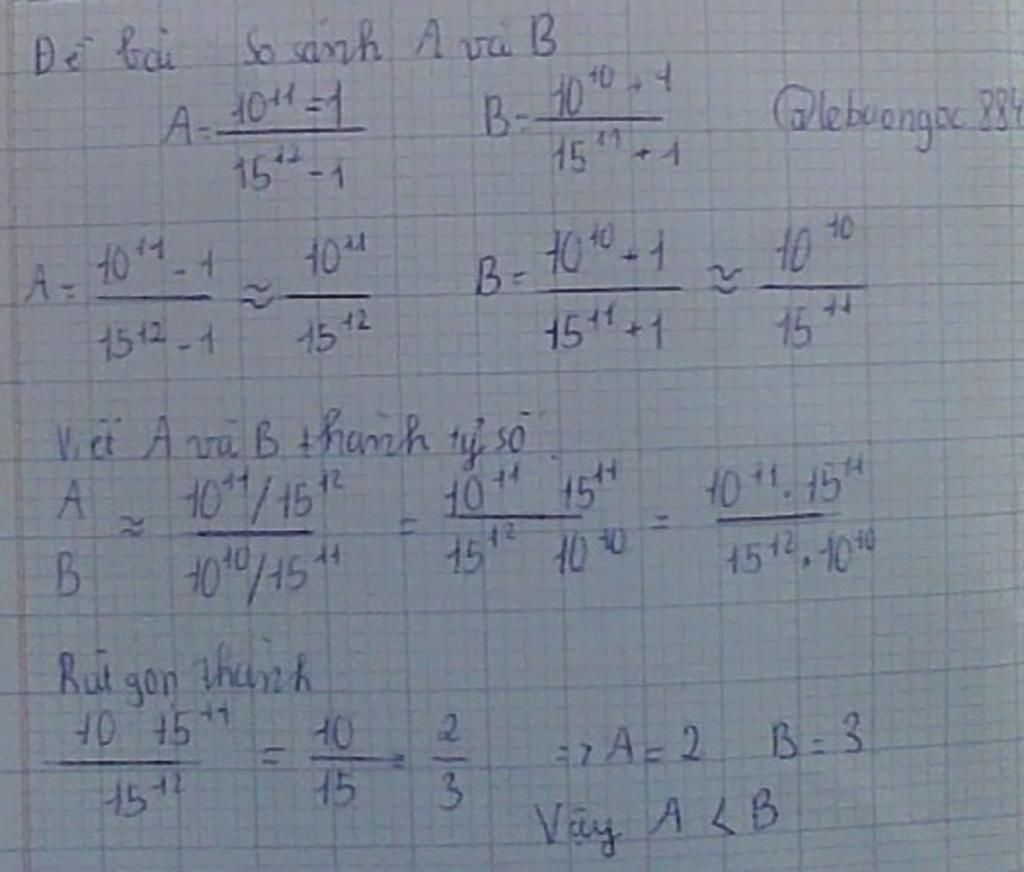 Đề bài So sánh A và B
A = (10^11 = 1)/(15^12 - 1) B = (10^10 + 1)/(15^11 + 1)
A = (10^11 - 1)/(15^12 - 1) ≈ 10^11/15^12 B = (10^10 + 1)/(15^11 + 1) ≈ 10^10/15^11
Viết A và B thành tỷ số
A/B ≈ (10^11/15^12)/(10^10/15^11) = (10^11 15^11)/(15^12 10^10) = (10^11 . 15^11)/(15^12 . 10^10)
Rút gọn thành
(10 15^11)/15^12 = 10/15 = 2/3 => A = 2 B = 3
Vậy A < B